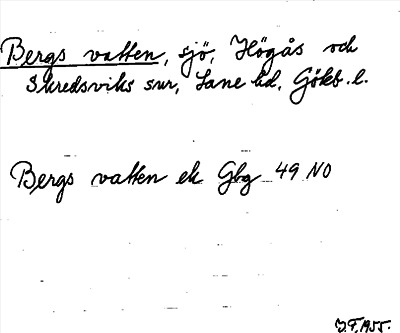 Bergs vatten, sjö, Högås och
Skredsviks snr, Lane hd, Göteb. l.
Bergs vatten ek Gbg 49 NO
J.F. 1955.